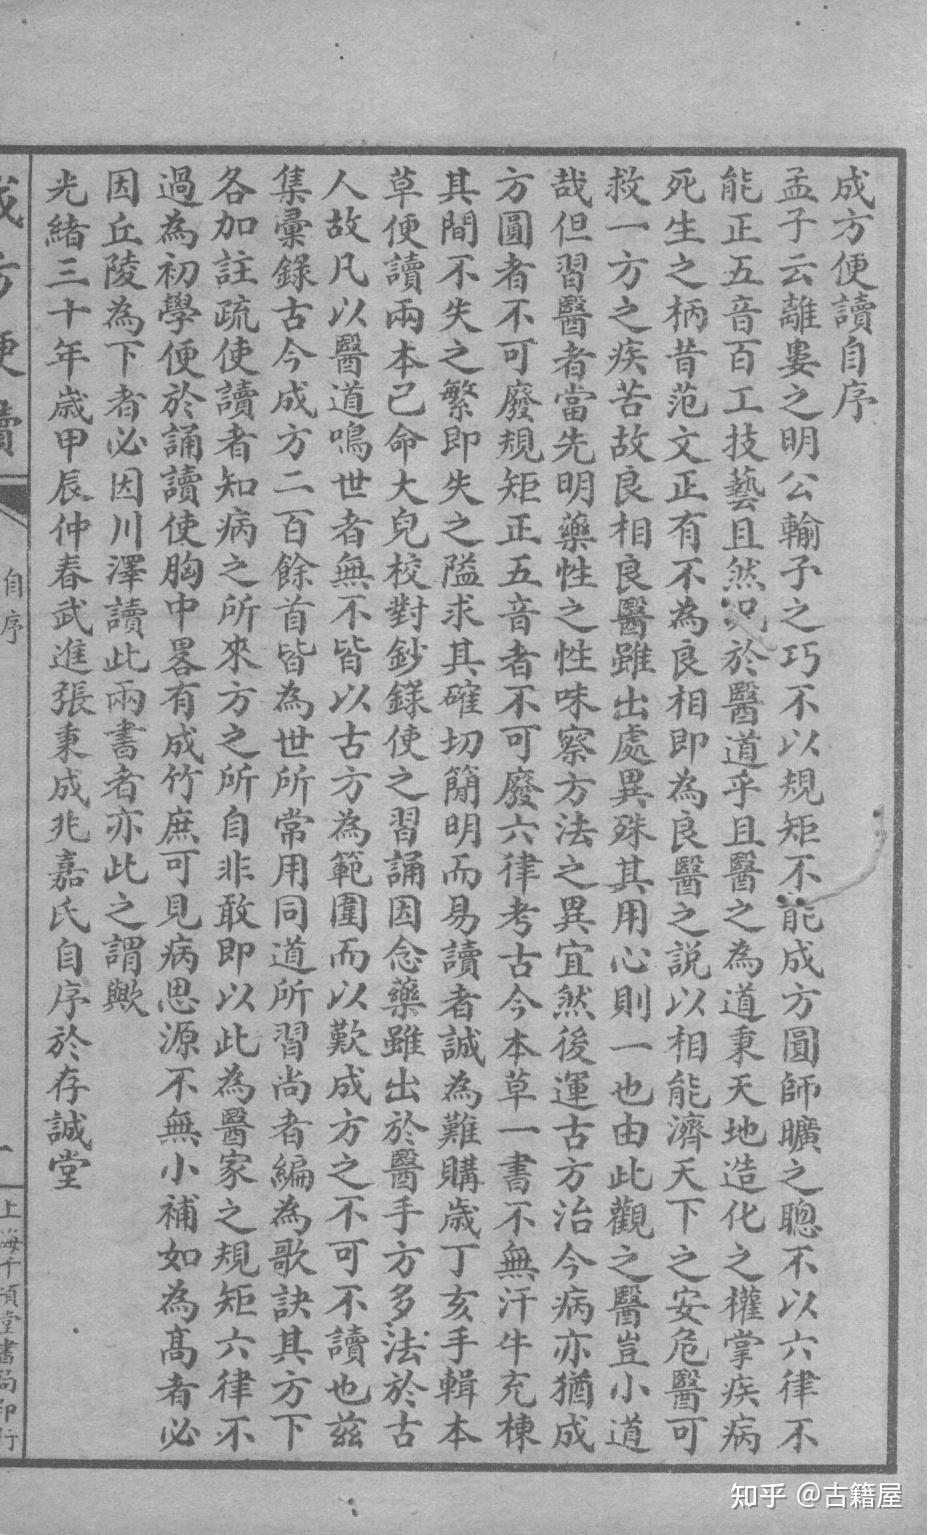 成方便讀自序
孟子云離婁之明公輸子之巧不以規矩不能成方圓師曠之聰不以六律不
能正五音百工技藝且然況於醫道乎且醫之為道秉天地造化之權掌疾病
死生之柄昔范文正有不為良相即為良醫之說以相能濟天下之安危醫可
救一方之疾苦故良相良醫雖出處異殊其用心則一也由此觀之醫豈小道
哉但習醫者當先明藥性之性味察方法之異宜然後運古方治今病亦猶成
方圓者不可廢規矩正五音者不可廢六律考古今本草一書不無汗牛充棟
其間不失之繁即失之隘求其確切簡明而易讀者誠為難購歲丁亥手輯本
草便讀兩本已命大兒校對鈔錄使之習誦因念藥雖出於醫手方多法於古
人故凡以醫道鳴世者無不皆以古方為範圍而以歎成方之不可不讀也茲
集彙錄古今成方二百餘首皆為世所常用同道所習尚者編為歌訣其方下
各加註疏使讀者知病之所來方之所自非敢即以此為醫家之規矩六律不
過為初學便於誦讀使胸中畧有成竹庶可見病思源不無小補如為髙者必
因丘陵為下者必因川澤讀此兩書者亦此之謂歟
光緒三十年歲甲辰仲春武進張秉成兆嘉氏自序於存誠堂
成方便讀
自序
一
上海千頃堂書局印行
知乎 @古籍屋